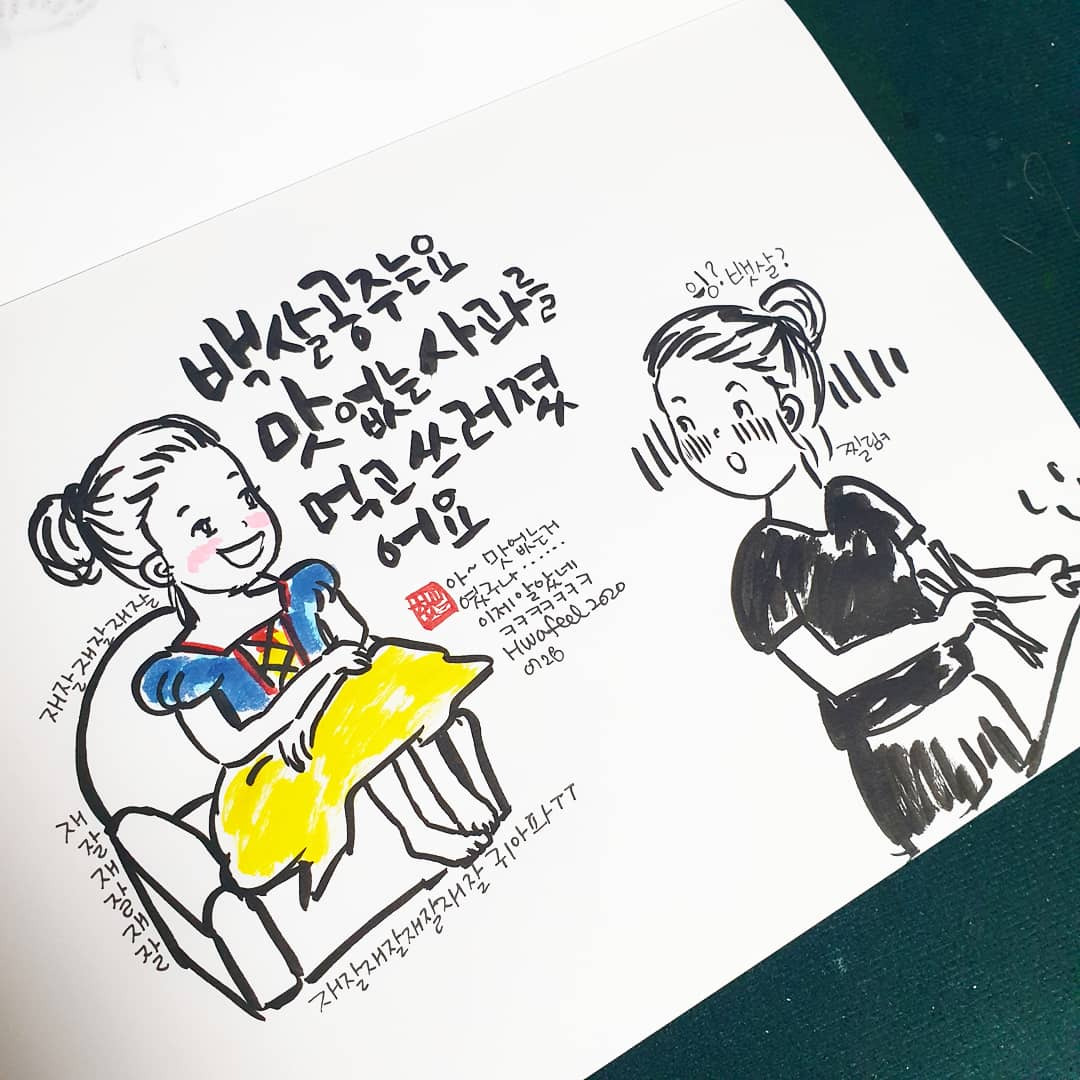 백살공주는요
맛없는 사과를
먹고 쓰러졌
어요
잉? 뱃살?
아~ 맛없는거
였구나......
이제알았네
ㅋㅋㅋㅋㅋ
Hwafeel2020
재잘재잘재잘
재잘재잘재잘
재잘재잘재잘재잘 귀아파ㅠㅠ